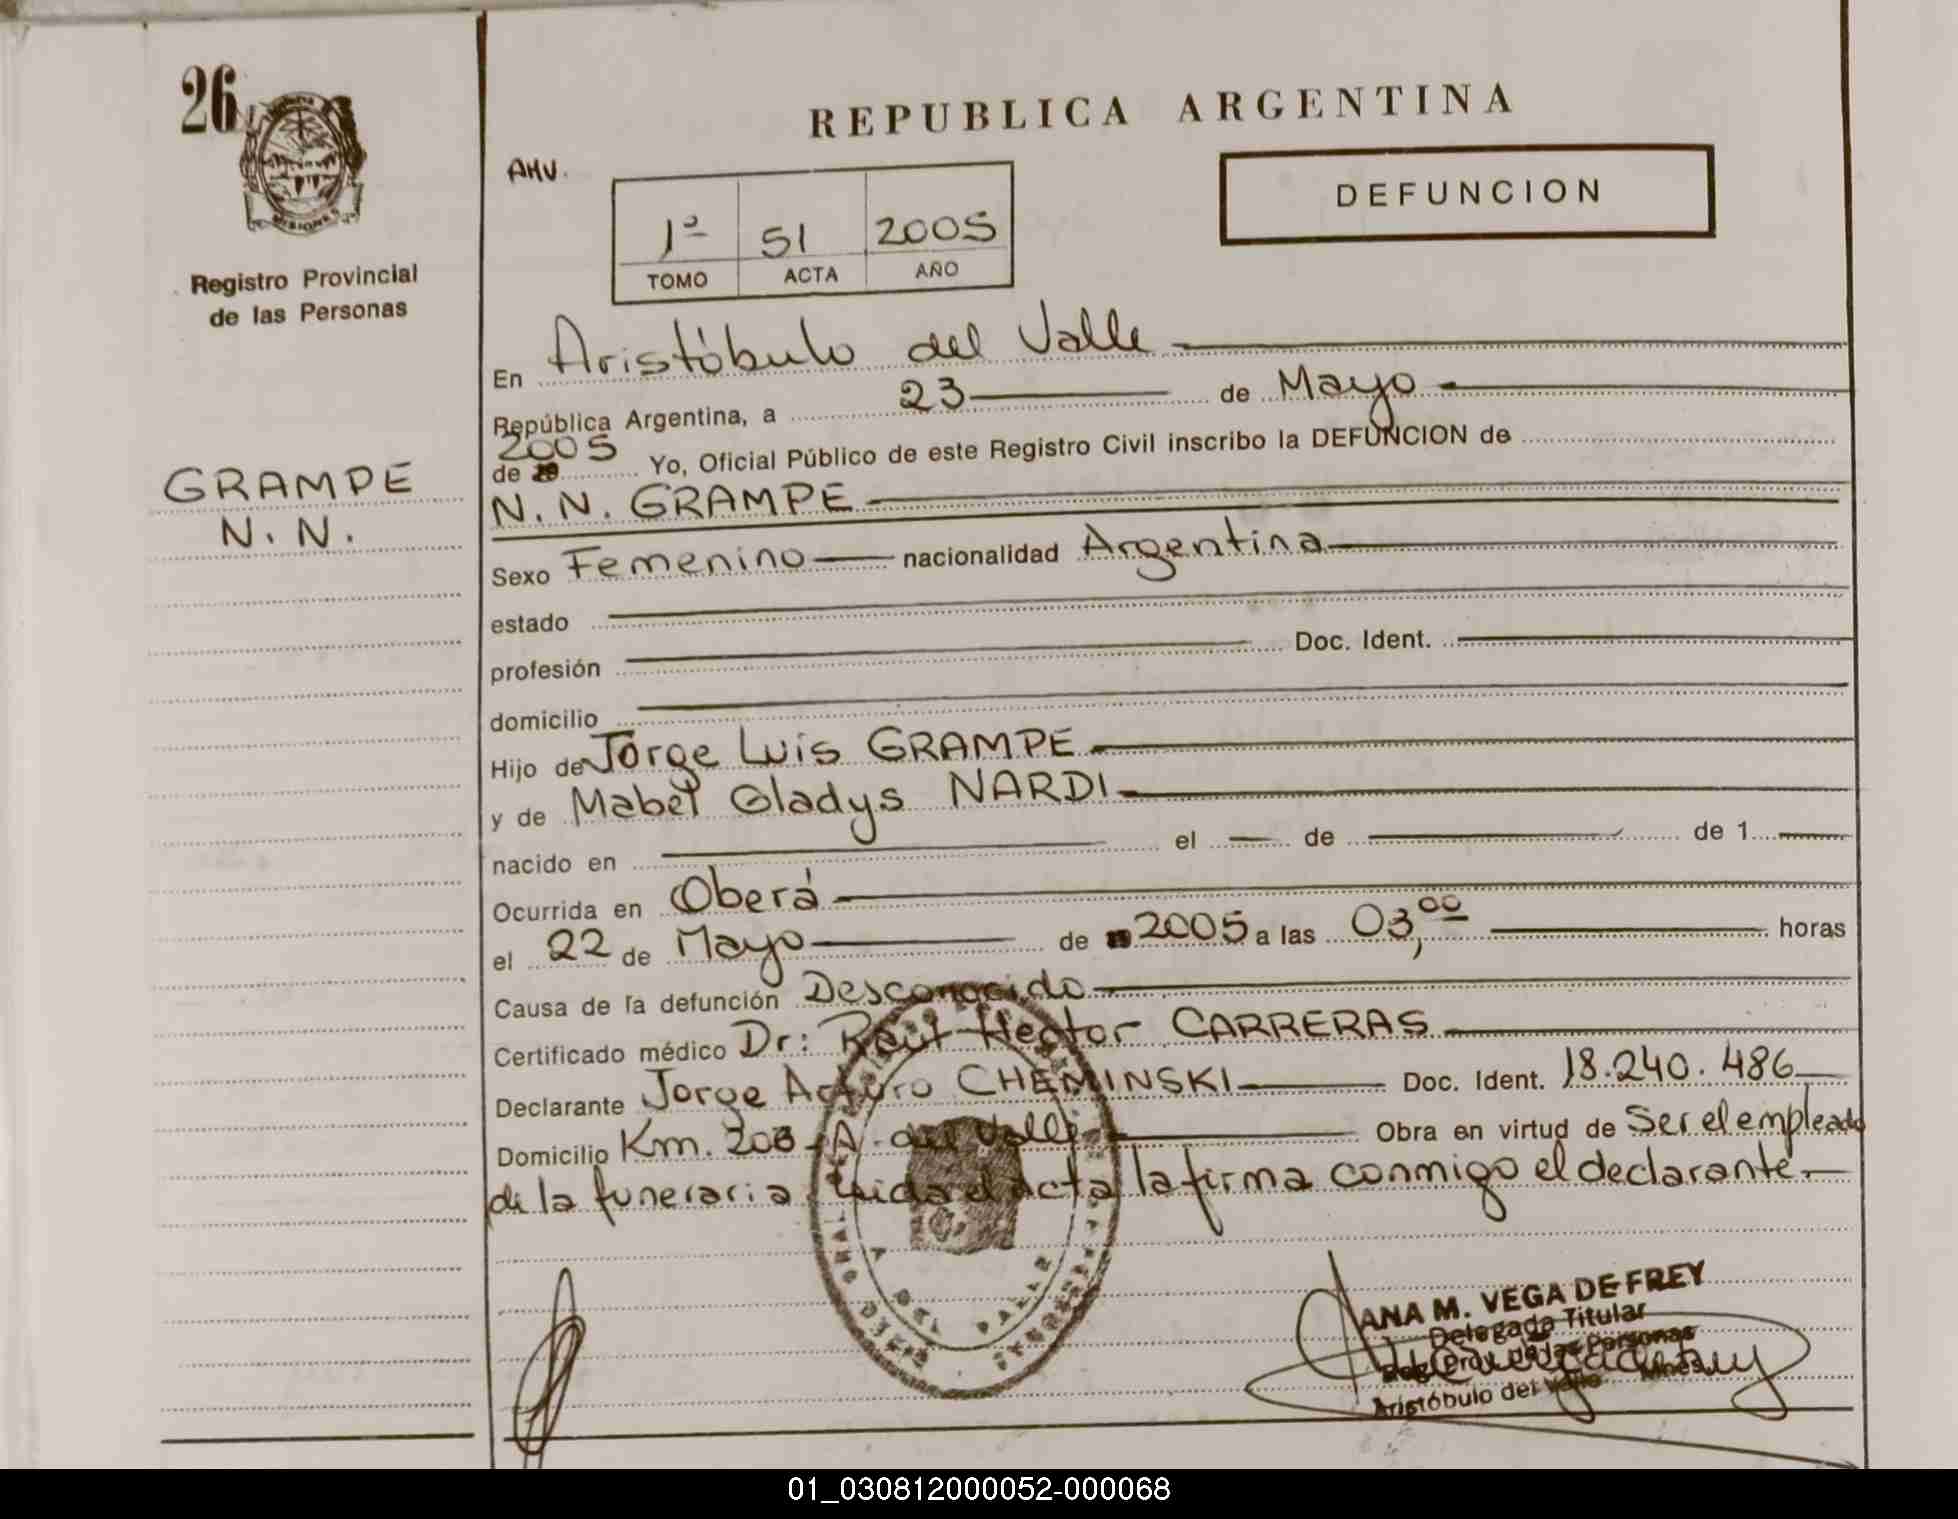 26
MISIONES
Registro Provincial
de las Personas
GRAMPE
N. N.
REPUBLICA ARGENTINA
AMV.
DEFUNCION
1º 51 2005
TOMO ACTA AÑO
En Aristóbulo del Valle
República Argentina, a 23 de Mayo
2005
de 19 Yo, Oficial Público de este Registro Civil inscribo la DEFUNCION de
N. N. GRAMPE
Sexo Femenino nacionalidad Argentina
estado
profesión Doc. Ident.
domicilio
Hijo de Jorge Luis GRAMPE
y de Mabel Gladys NARDI
nacido en el de de 1
Ocurrida en Oberá
el 22 de Mayo de 2005 a las 03,00 horas
Causa de la defunción Desconocido
Certificado médico Dr: Raúl Hector CARRERAS
Declarante Jorge Arturo CHEMINSKI Doc. Ident. 18.240.486
Domicilio Km. 208 - A. del Valle Obra en virtud de Ser el empleado
de la funeraria Leida el acta la firma conmigo el declarante.
ANA M. VEGA DE FREY
Delegada Titular
de las Personas
Aristóbulo del Valle Mnes.
01_030812000052-000068